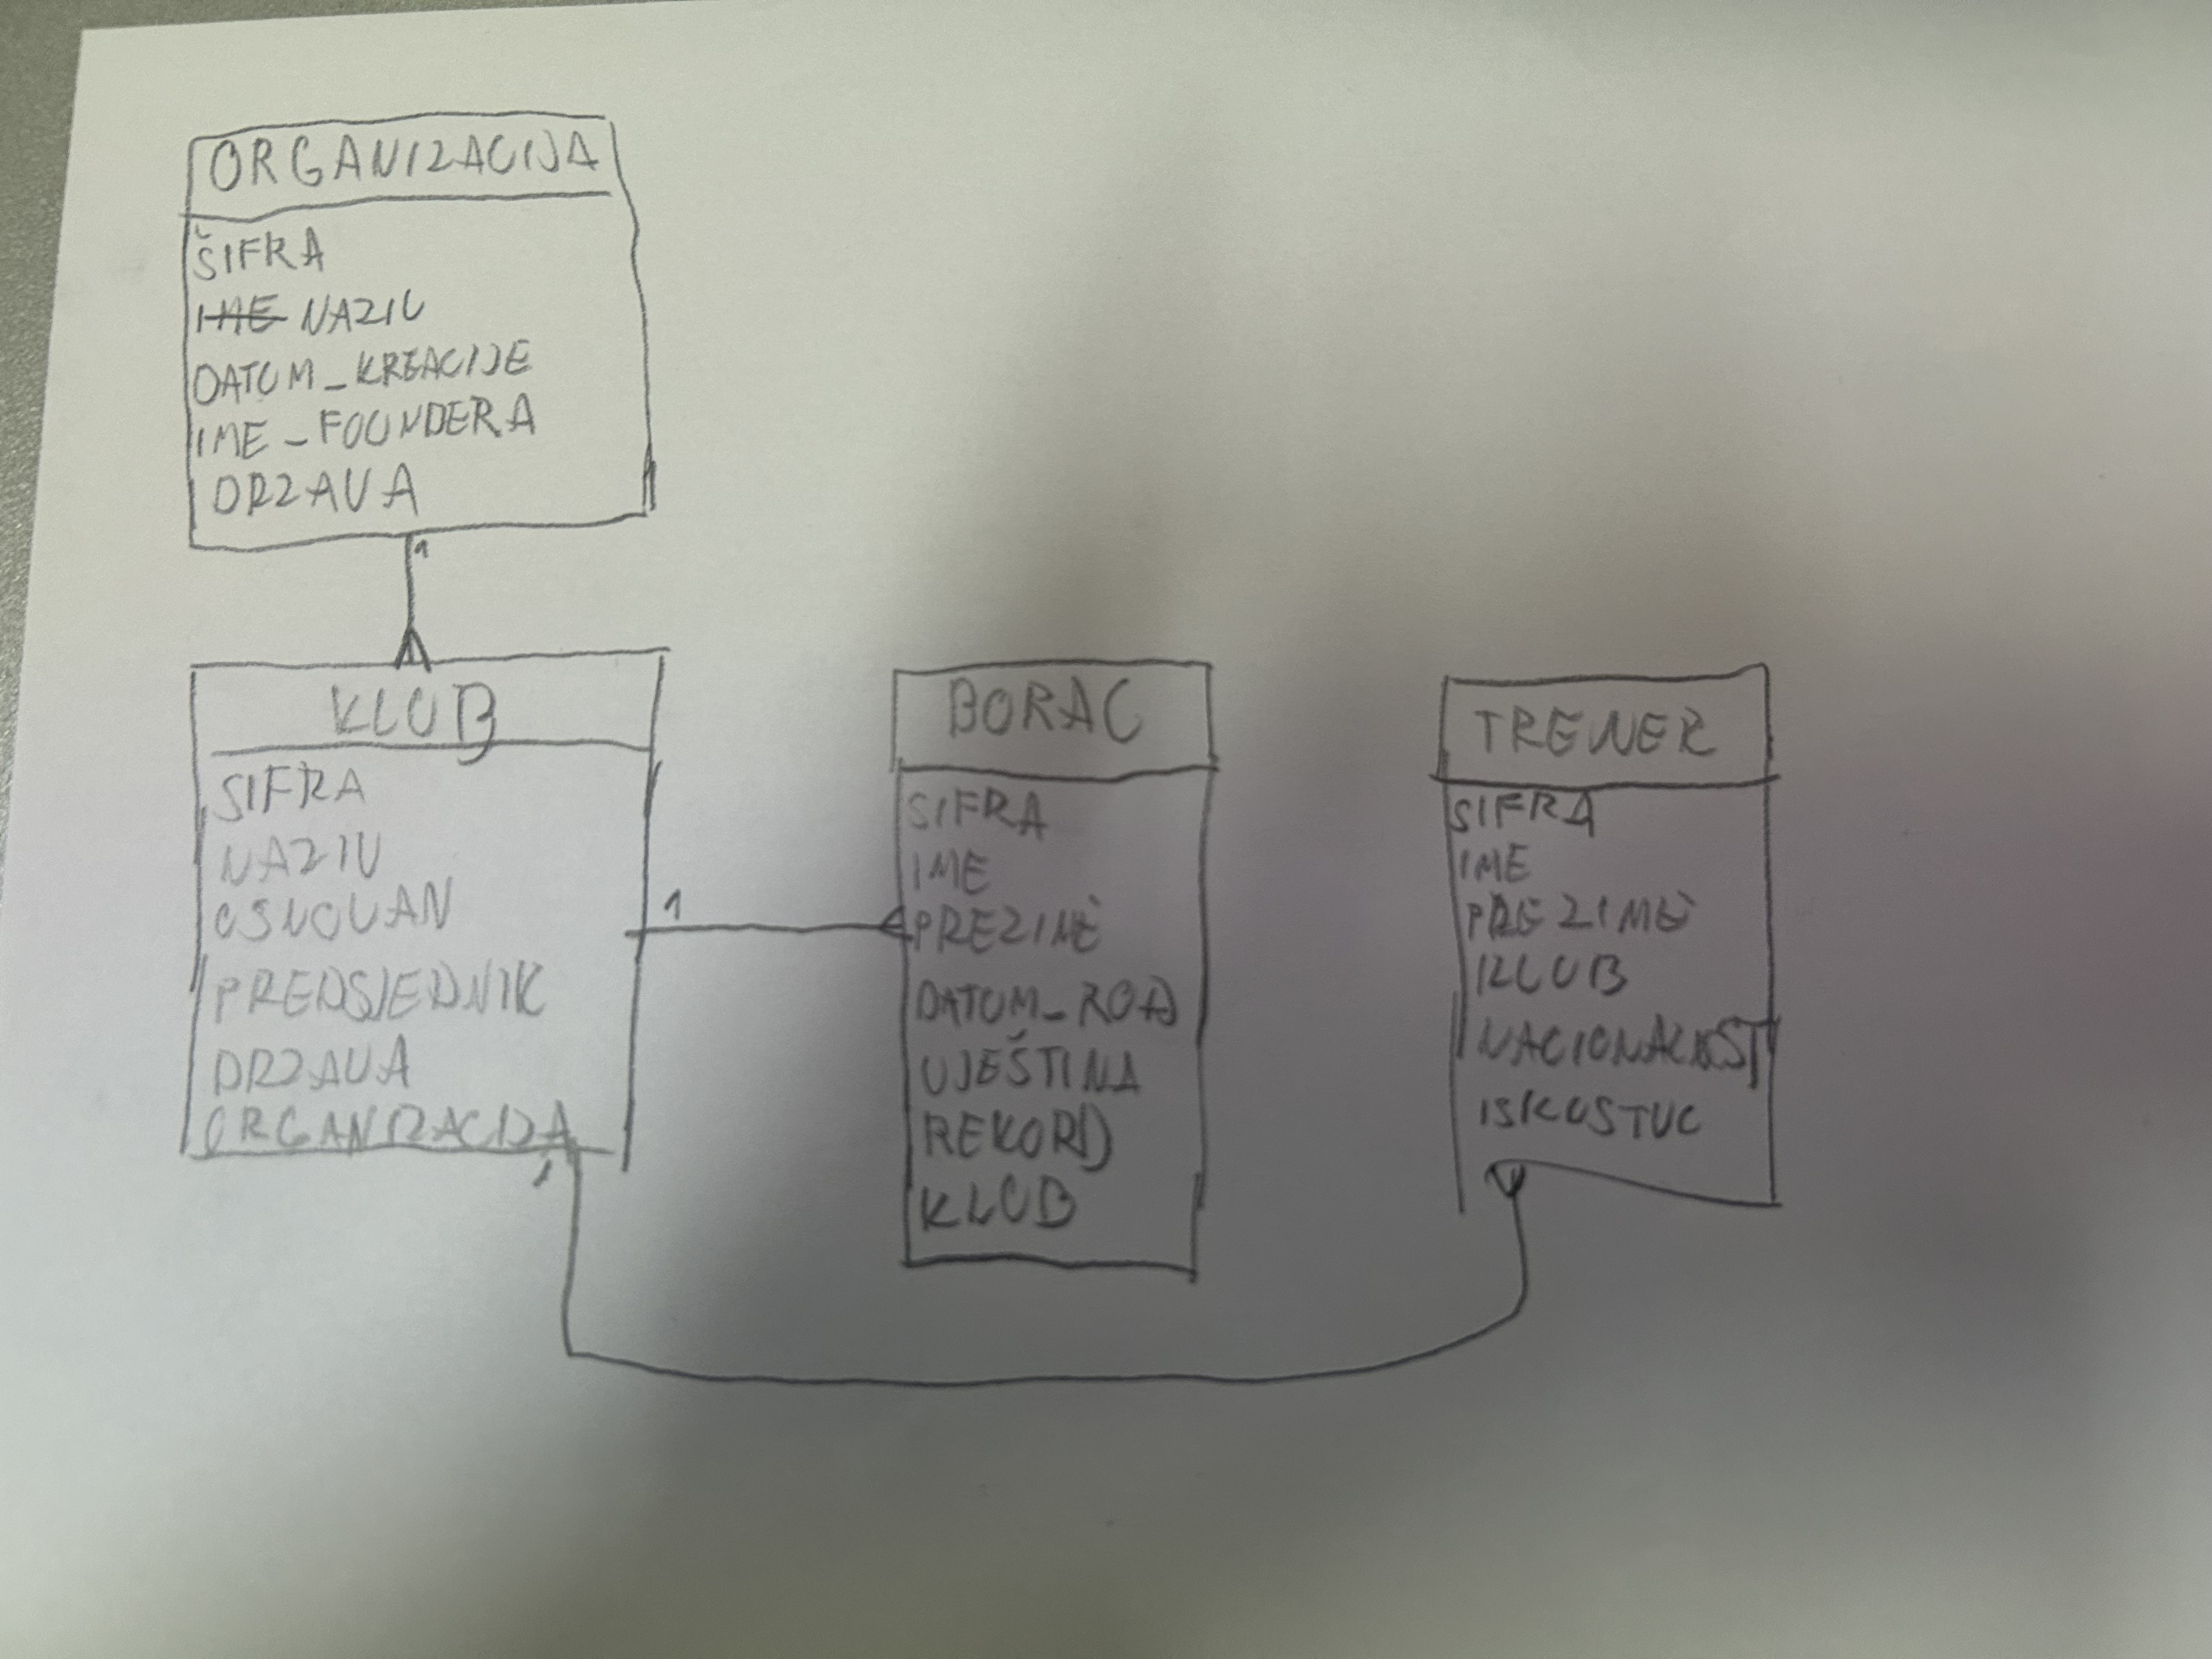 ORGANIZACIJA
ŠIFRA
IME NAZIV
DATUM_KREACIJE
IME_FOUNDERA
DRZAVA
1
KLUB
SIFRA
NAZIV
OSNOVAN
PREDSJEDNIK
DRZAVA
ORGANIZACIJA
1
1
BORAC
SIFRA
IME
PREZIME
DATUM_ROĐ
VJEŠTINA
REKORD
KLUB
TRENER
SIFRA
IME
PREZIME
KLUB
NACIONALNOST
ISKUSTVO